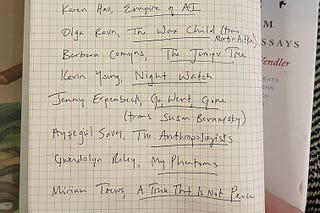 Karen Hao, Empire of AI
Olga Ravn, The Wax Child (trans
Martin Aitken)
Barbara Comyns, The Juniper Tree
Kevin Young, Night Watch
Jenny Erpenbeck, Go, Went, Gone
(trans Susan Bernofsky)
Ayşegül Savaş, The Anthropologists
Gwendolyn Riley, My Phantoms
Miriam Toews, A Truce That Is Not Peace
M
ESSAYS
Vendler
EATS